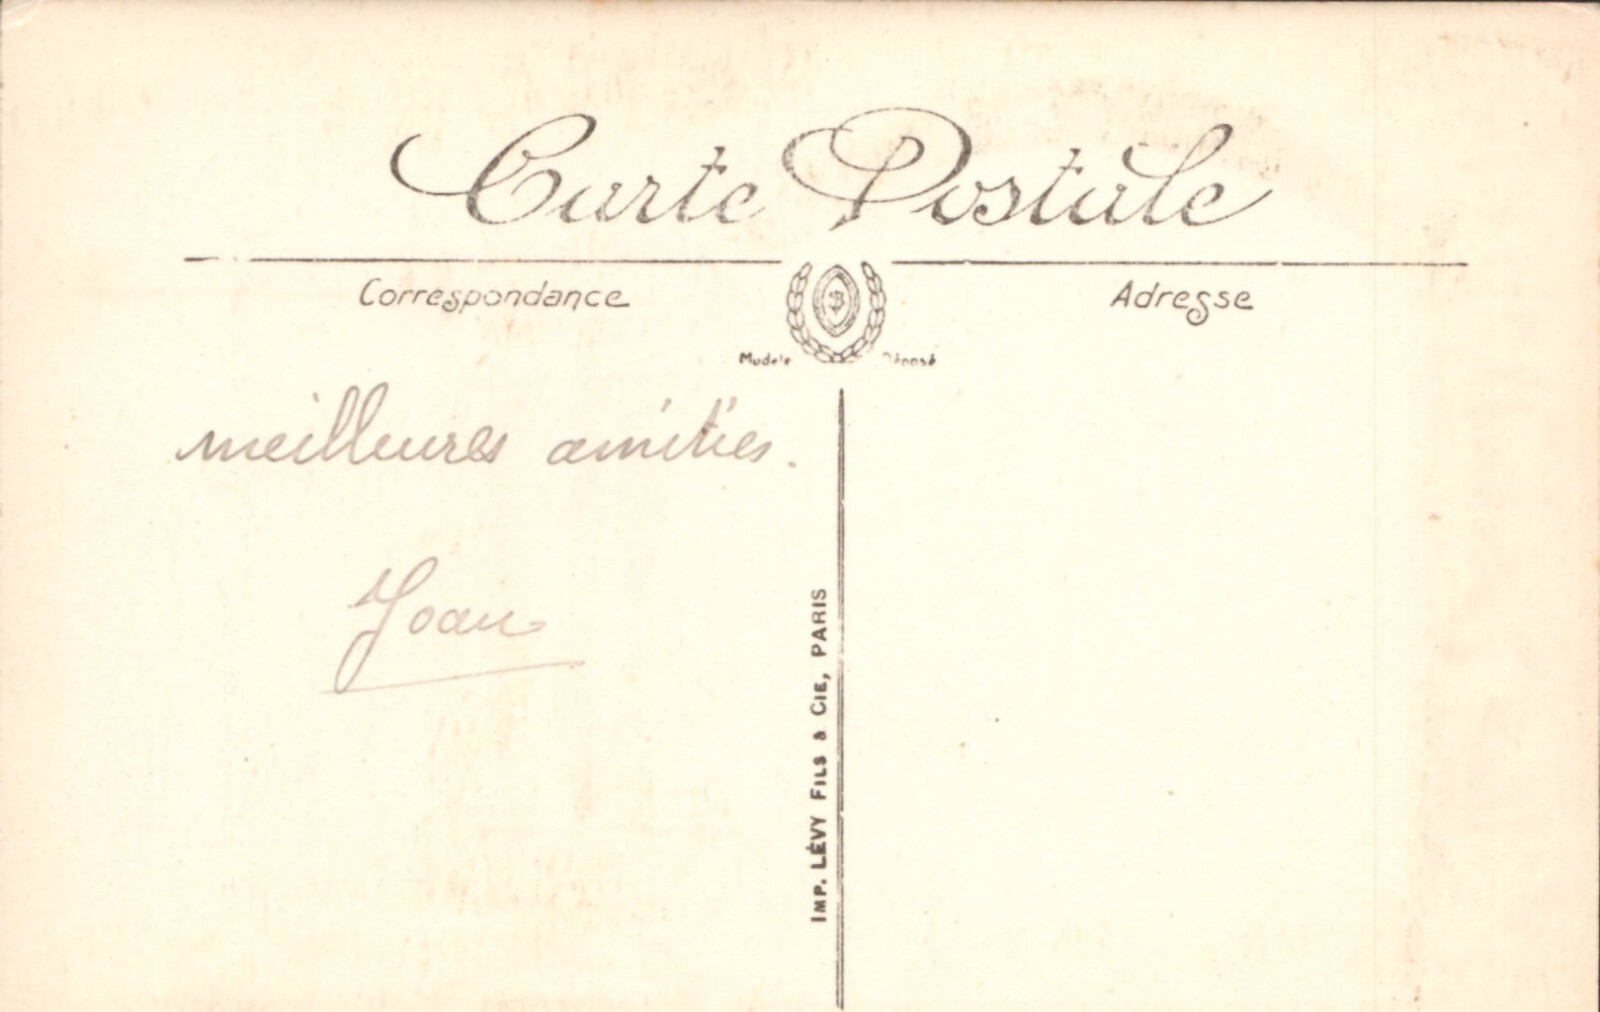 Carte Postale
Correspondance
Adresse
Modèle Déposé
meilleures amitiés.
Joan
IMP. LÉVY FILS & CIE, PARIS